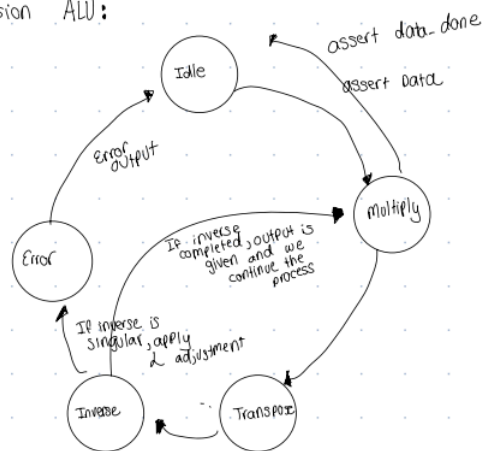 sion ALU:
assert data_done
Idle
assert Data
Error
output
Multiply
If inverse
completed, output is
given and we
continue the
process
Error
If inverse is
singular, apply
adjustment
Inverse
Transpose